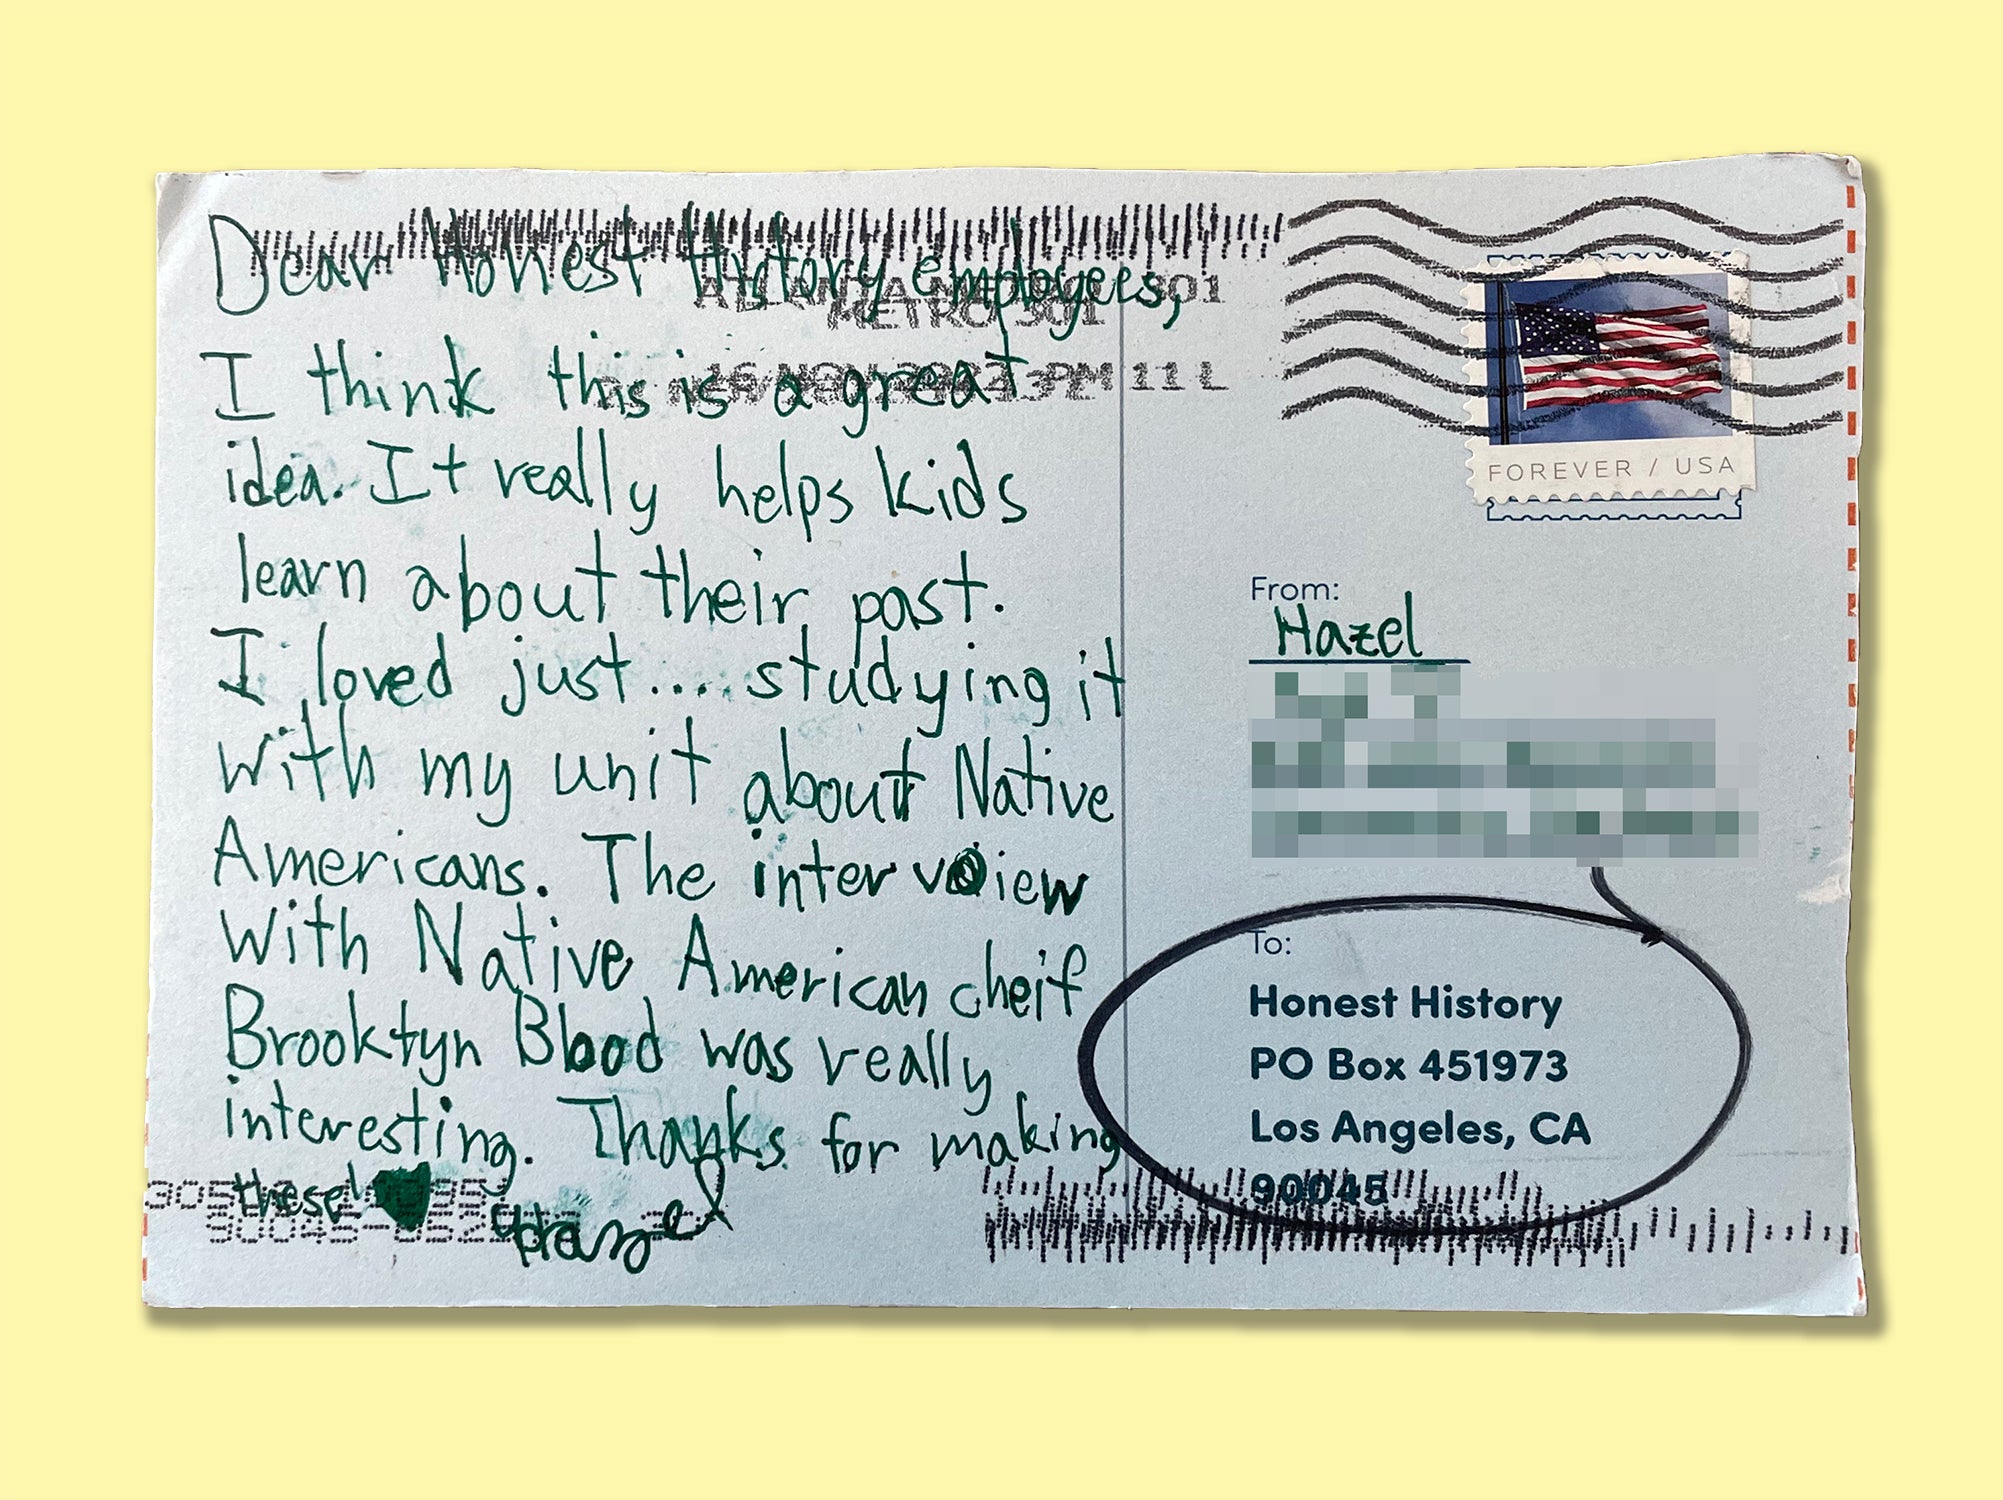 Dear Honest History employees,
I think this is a great
idea. It really helps kids
learn about their past.
I loved just.... studying it
with my unit about Native
Americans. The interview
with Native American cheif
Brooklyn Blood was really
interesting. Thanks for making
these!
Hazel
METRO 301
PM 11 L
FOREVER / USA
From:
Hazel
To:
Honest History
PO Box 451973
Los Angeles, CA
90045